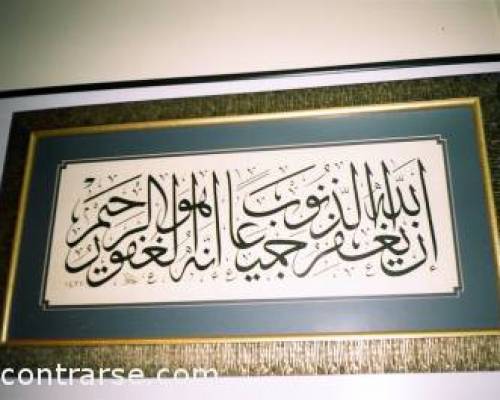 إن الله يغفر الذنوب جميعًا إنه هو الغفور الرحيم
contrarse.com